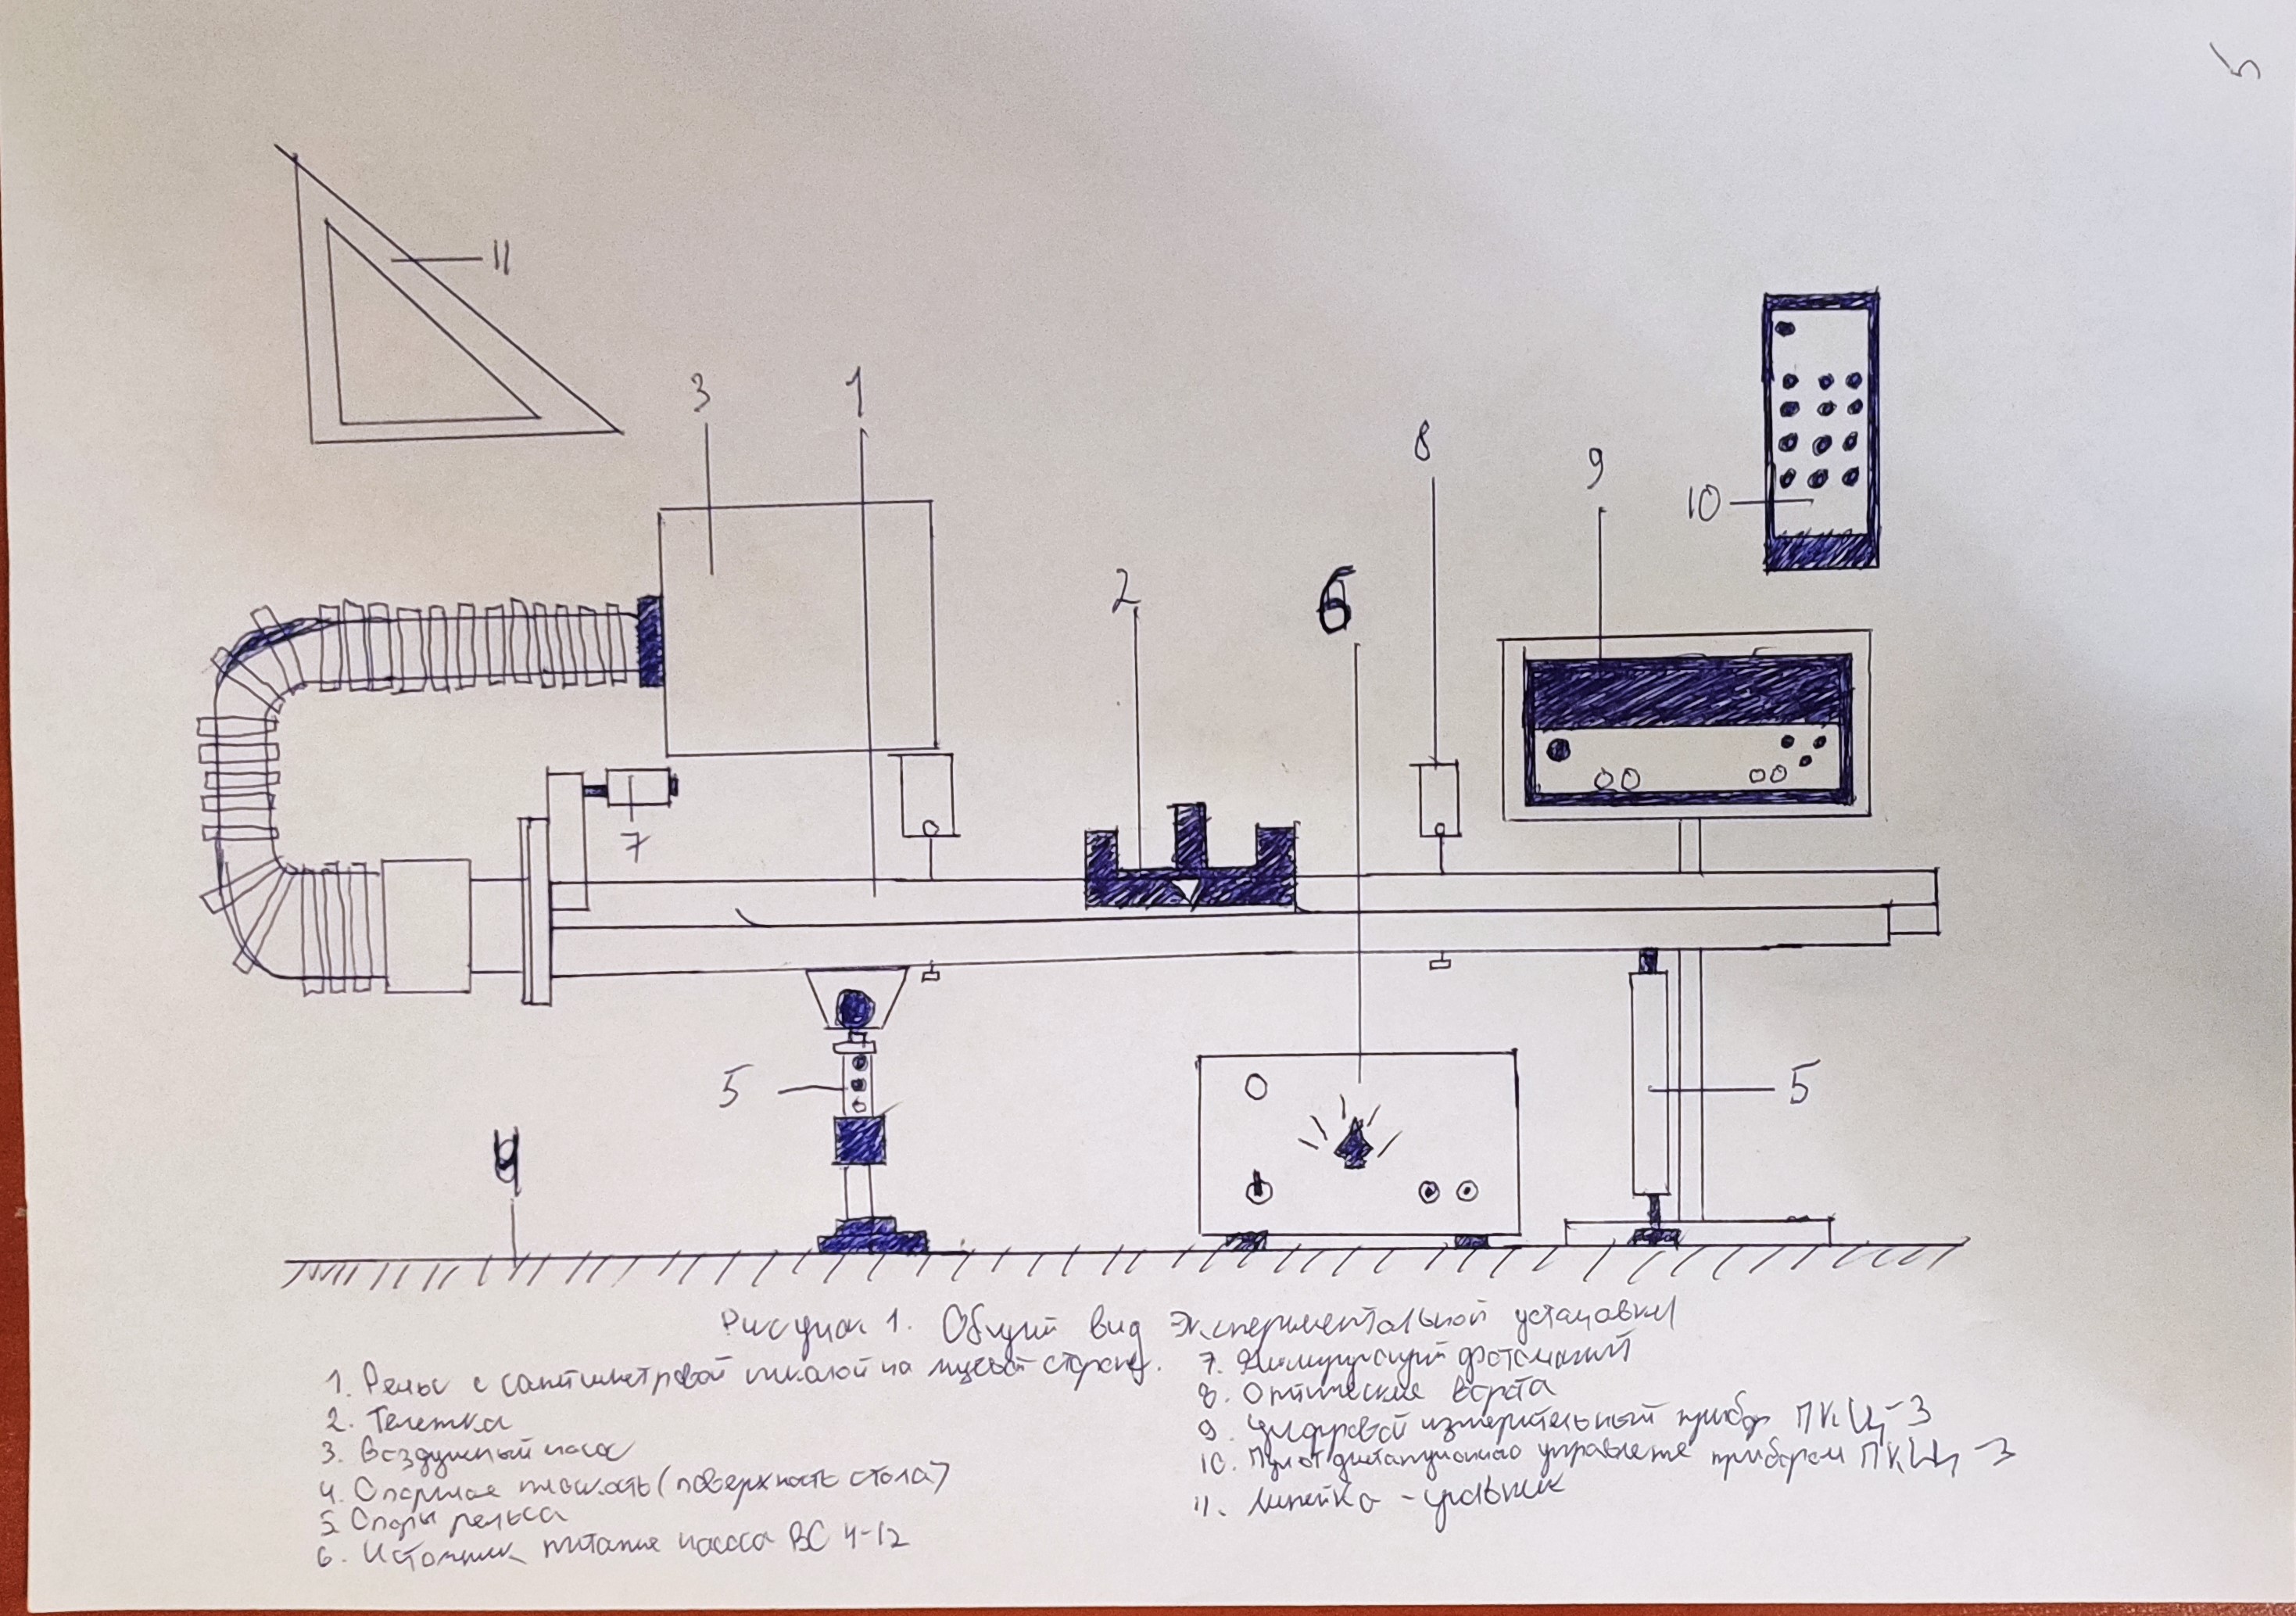 5
11
3
1
8
9
10
2
6
7
5
5
4
Рисунок 1. Общий вид экспериментальной установки
1. Рельс с сантиметровой шкалой на лицевой стороне.
2. Тележка
3. Воздушный насос
4. Опорная плоскость (поверхность стола)
5. Опоры рельса
6. Источник питания насоса ВС 4-12
7. фотоэлемент
8. Оптические ворота
9. Цифровой измерительный прибор ПКЦ-3
10. Пульт дистанционного управления прибором ПКЦ-3
11. Линейка - угольник